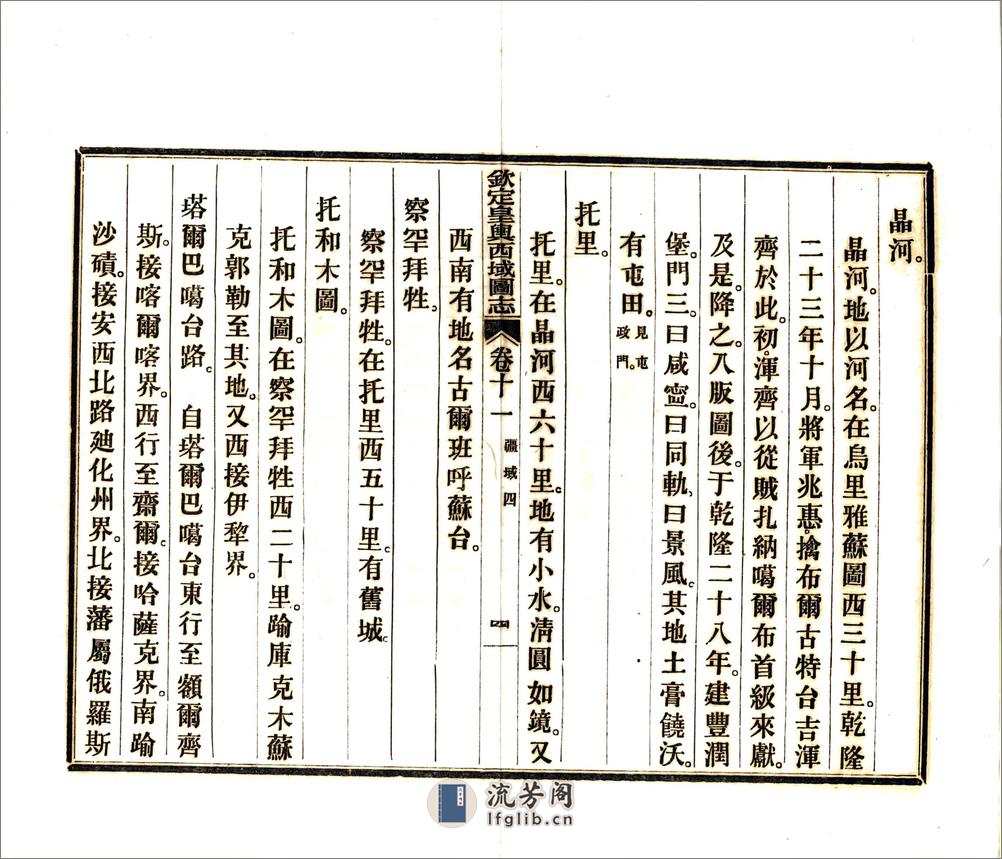 晶河。
晶河。地以河名。在烏里雅蘇圖西三十里。乾隆
二十三年十月。將軍兆惠。擒布爾古特台吉渾
齊於此。初。渾齊以從賊扎納噶爾布首級來獻。
及是。降之。入版圖後。于乾隆二十八年。建豐潤
堡。門三。曰咸寍。曰同軌。曰景風。其地土膏饒沃。
有屯田。見屯政門。
托里。
托里。在晶河西六十里。地有小水。淸圓如鏡。又
欽定皇輿西域圖志 卷十一 疆域四 四
西南有地名古爾班呼蘇台。
察罕拜牲。
察罕拜牲。在托里西五十里。有舊城。
托和木圖。
托和木圖。在察罕拜牲西二十里。踰庫克木蘇
克郭勒至其地。又西接伊犂界。
塔爾巴噶台路。 自塔爾巴噶台東行至額爾齊
斯。接喀爾喀界。西行至齋爾。接哈薩克界。南踰
沙磧。接安西北路廸化州界。北接藩屬俄羅斯
流芳阁
lfglib.cn